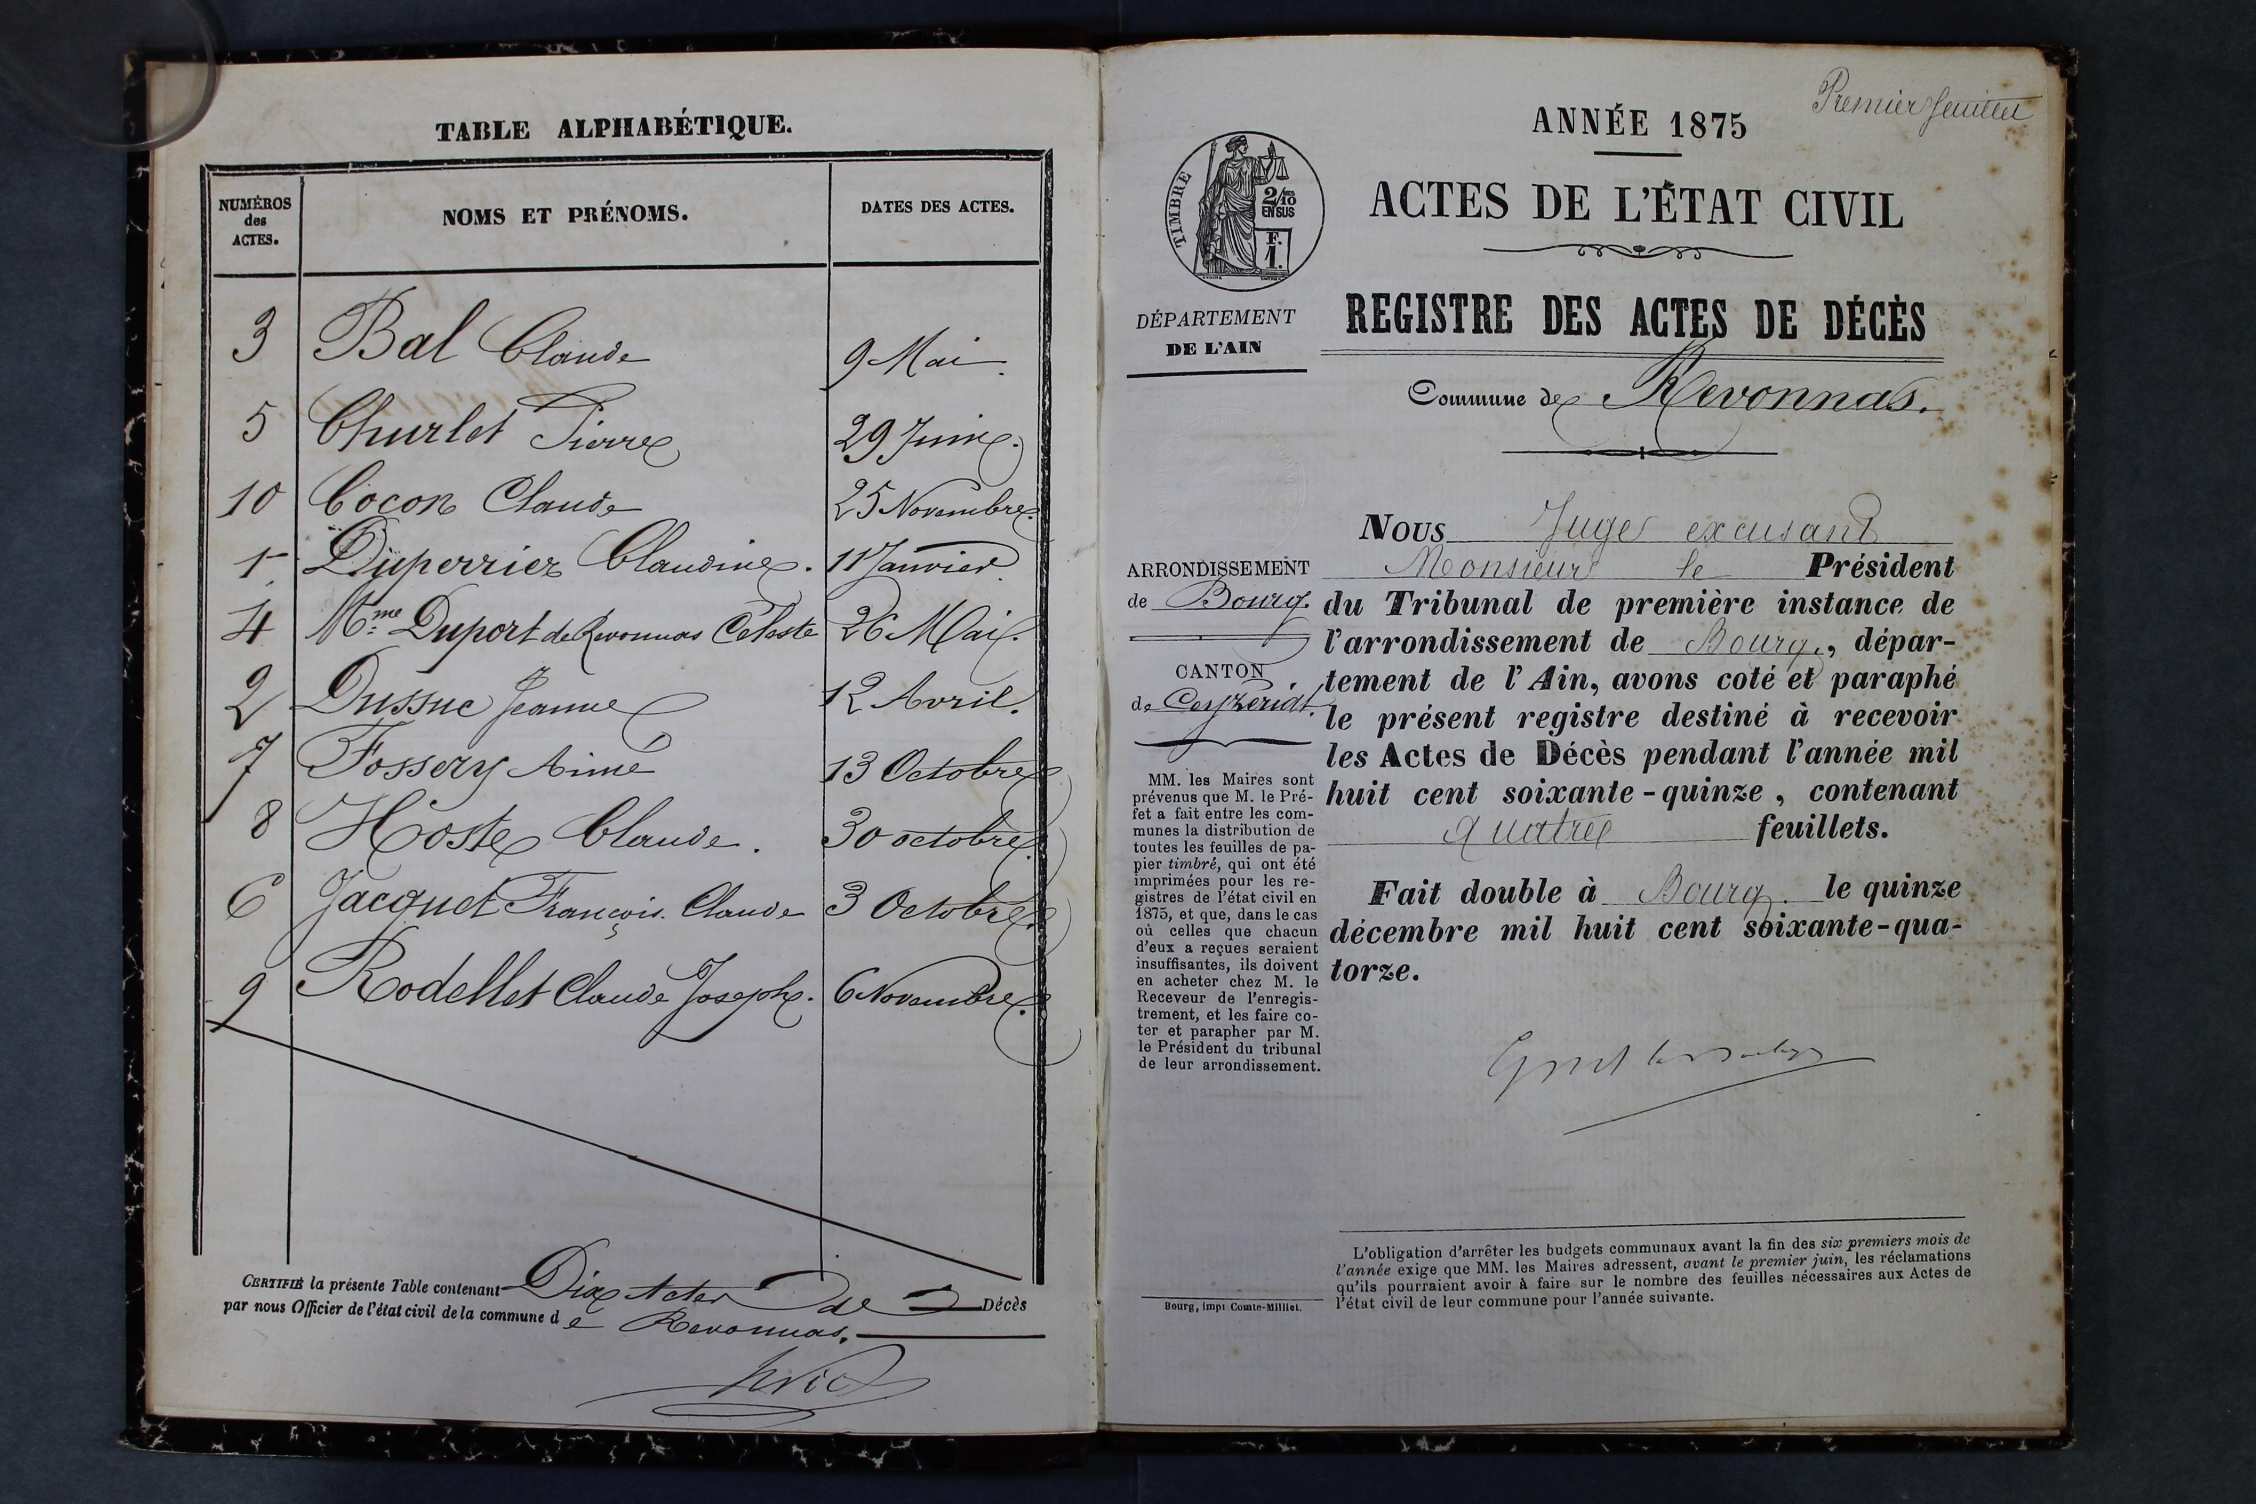 TABLE ALPHABÉTIQUE.
NUMÉROS des ACTES. NOMS ET PRÉNOMS. DATES DES ACTES.
3 Bal Claude 9 Mai.
5 Churlet Pierre 29 Juin.
10 Cocon Claude 25 Novembre.
1 Duperrier Claudine. 11 Janvier.
4 Mme Duport de Revonnas Céleste 26 Mai.
2 Dussuc Jeanne 12 Avril.
7 Fossery Aimé 13 Octobre
8 Hoste Claude. 30 octobre.
6 Jacquet François Claude 3 Octobre.
9 Rodellet Claude Joseph. 6 Novembre.
CERTIFIÉ la présente Table contenant Dix Actes de Décès
par nous Officier de l'état civil de la commune de Revonnas.
Premier feuillet
ANNÉE 1875
ACTES DE L'ÉTAT CIVIL
TIMBRE
2/10 EN SUS
F. 1.
DÉPARTEMENT
DE L'AIN
REGISTRE DES ACTES DE DÉCÈS
Commune de Revonnas.
ARRONDISSEMENT
de Bourg.
CANTON
de Ceyzériat.
MM. les Maires sont
prévenus que M. le Pré-
fet a fait entre les com-
munes la distribution de
toutes les feuilles de pa-
pier timbré, qui ont été
imprimées pour les re-
gistres de l'état civil en
1875, et que, dans le cas
où celles que chacun
d'eux a reçues seraient
insuffisantes, ils doivent
en acheter chez M. le
Receveur de l'enregis-
trement, et les faire co-
ter et parapher par M.
le Président du tribunal
de leur arrondissement.
Bourg, impr Comte-Milliet.
Nous Juge excusant
Monsieur le Président
du Tribunal de première instance de
l'arrondissement de Bourg, dépar-
tement de l'Ain, avons coté et paraphé
le présent registre destiné à recevoir
les Actes de Décès pendant l'année mil
huit cent soixante-quinze, contenant
quatre feuillets.
Fait double à Bourg. le quinze
décembre mil huit cent soixante-qua-
torze.
L'obligation d'arrêter les budgets communaux avant la fin des six premiers mois de
l'année exige que MM. les Maires adressent, avant le premier juin, les réclamations
qu'ils pourraient avoir à faire sur le nombre des feuilles nécessaires aux Actes de
l'état civil de leur commune pour l'année suivante.